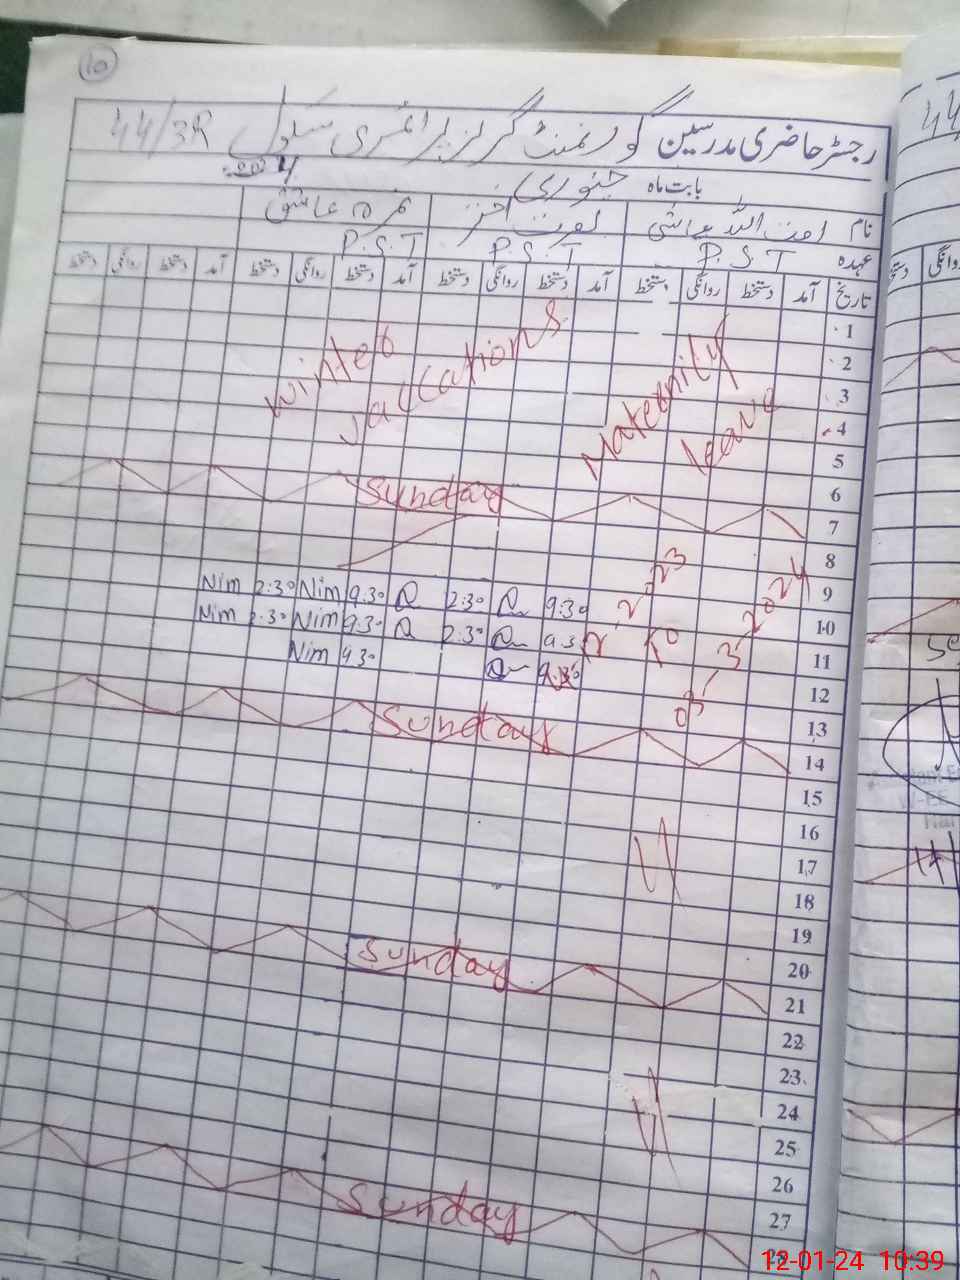 10
رجسٹر حاضری مدرسین گورنمنٹ گرلز پرائمری سکول 44/3R
بابت ماہ جنوری
نام نصرت اختر نمرہ عاشق
عہدہ P.S.T P.S.T P.S.T
تاریخ آمد دستخط روانگی دستخط آمد دستخط روانگی دستخط آمد دستخط روانگی دستخط آمد دستخط روانگی دستخط
1
2
3
4
5
6
7
8
9
10
11
12
13
14
15
16
17
18
19
20
21
22
23
24
25
26
27
28
Winter
Vaccations
Maternity
leave
Sunday
Nim 2:30 Nim 9:30 2:30 9:30
Nim 2:30 Nim 9:30 2:30 9:30
Nim 9:30
2023
2024
Sunday
Sunday
Sunday
44
روانگی
دستخط
W-EE
12-01-24 10:39